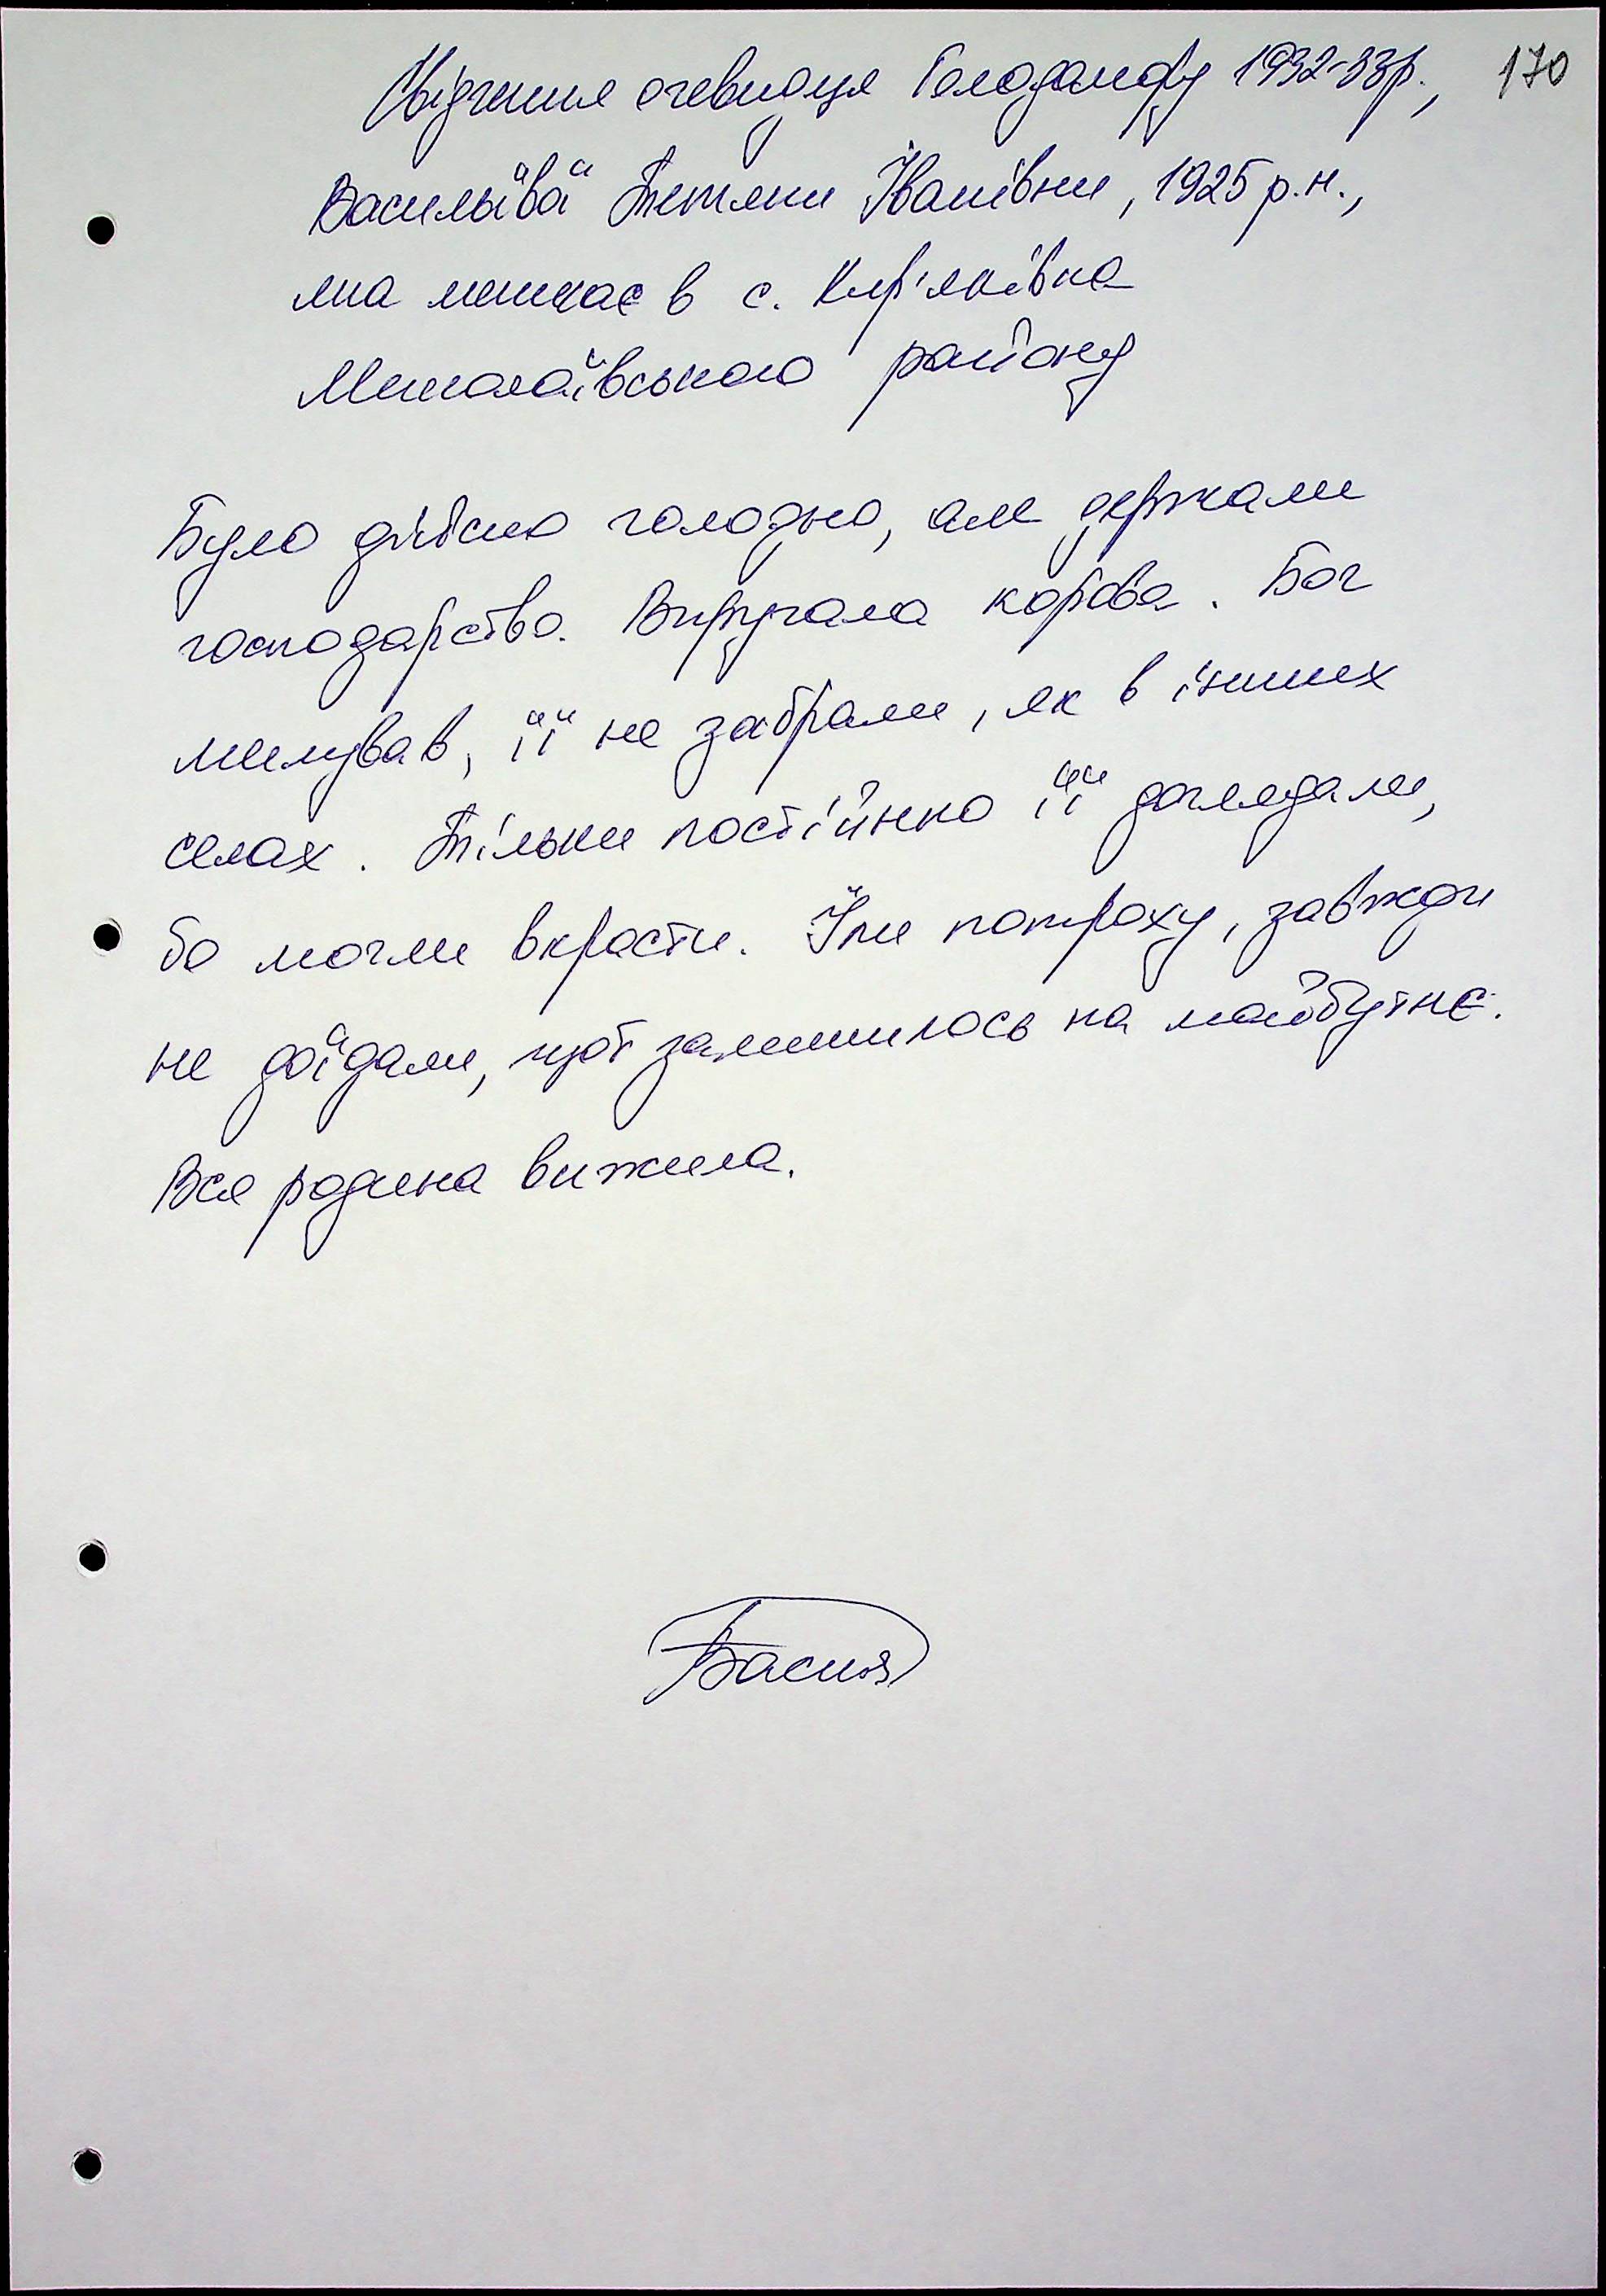 Свідчення очевидця Голодомору 1932-33р., 170
Васильєвої Тетяни Іванівни, 1925 р.н.,
яка мешкає в с. Кир'яківка
Миколаївського району
Було дійсно голодно, але держали
господарство. Виручала корова. Бог
милував, її не забрали, як в інших
селах. Тільки постійно її доглядали,
бо могли вкрасти. Їли потроху, завжди
не доїдали, щоб залишилось на майбутнє.
Вся родина вижила.